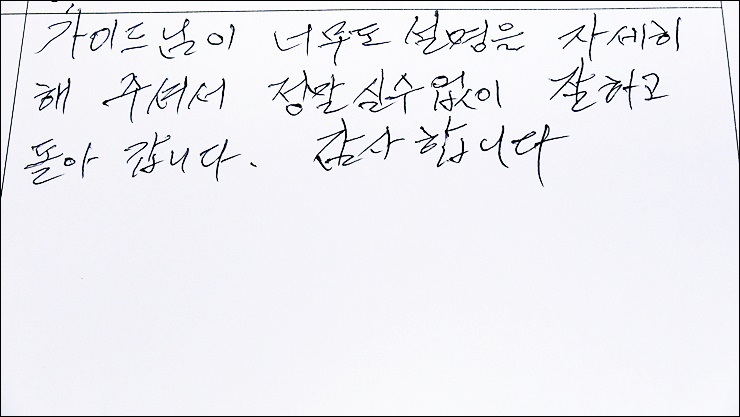 가이드님이 너무도 설명을 자세히
해 주셔서 정말 실수없이 잘하고
돌아 갑니다. 감사합니다